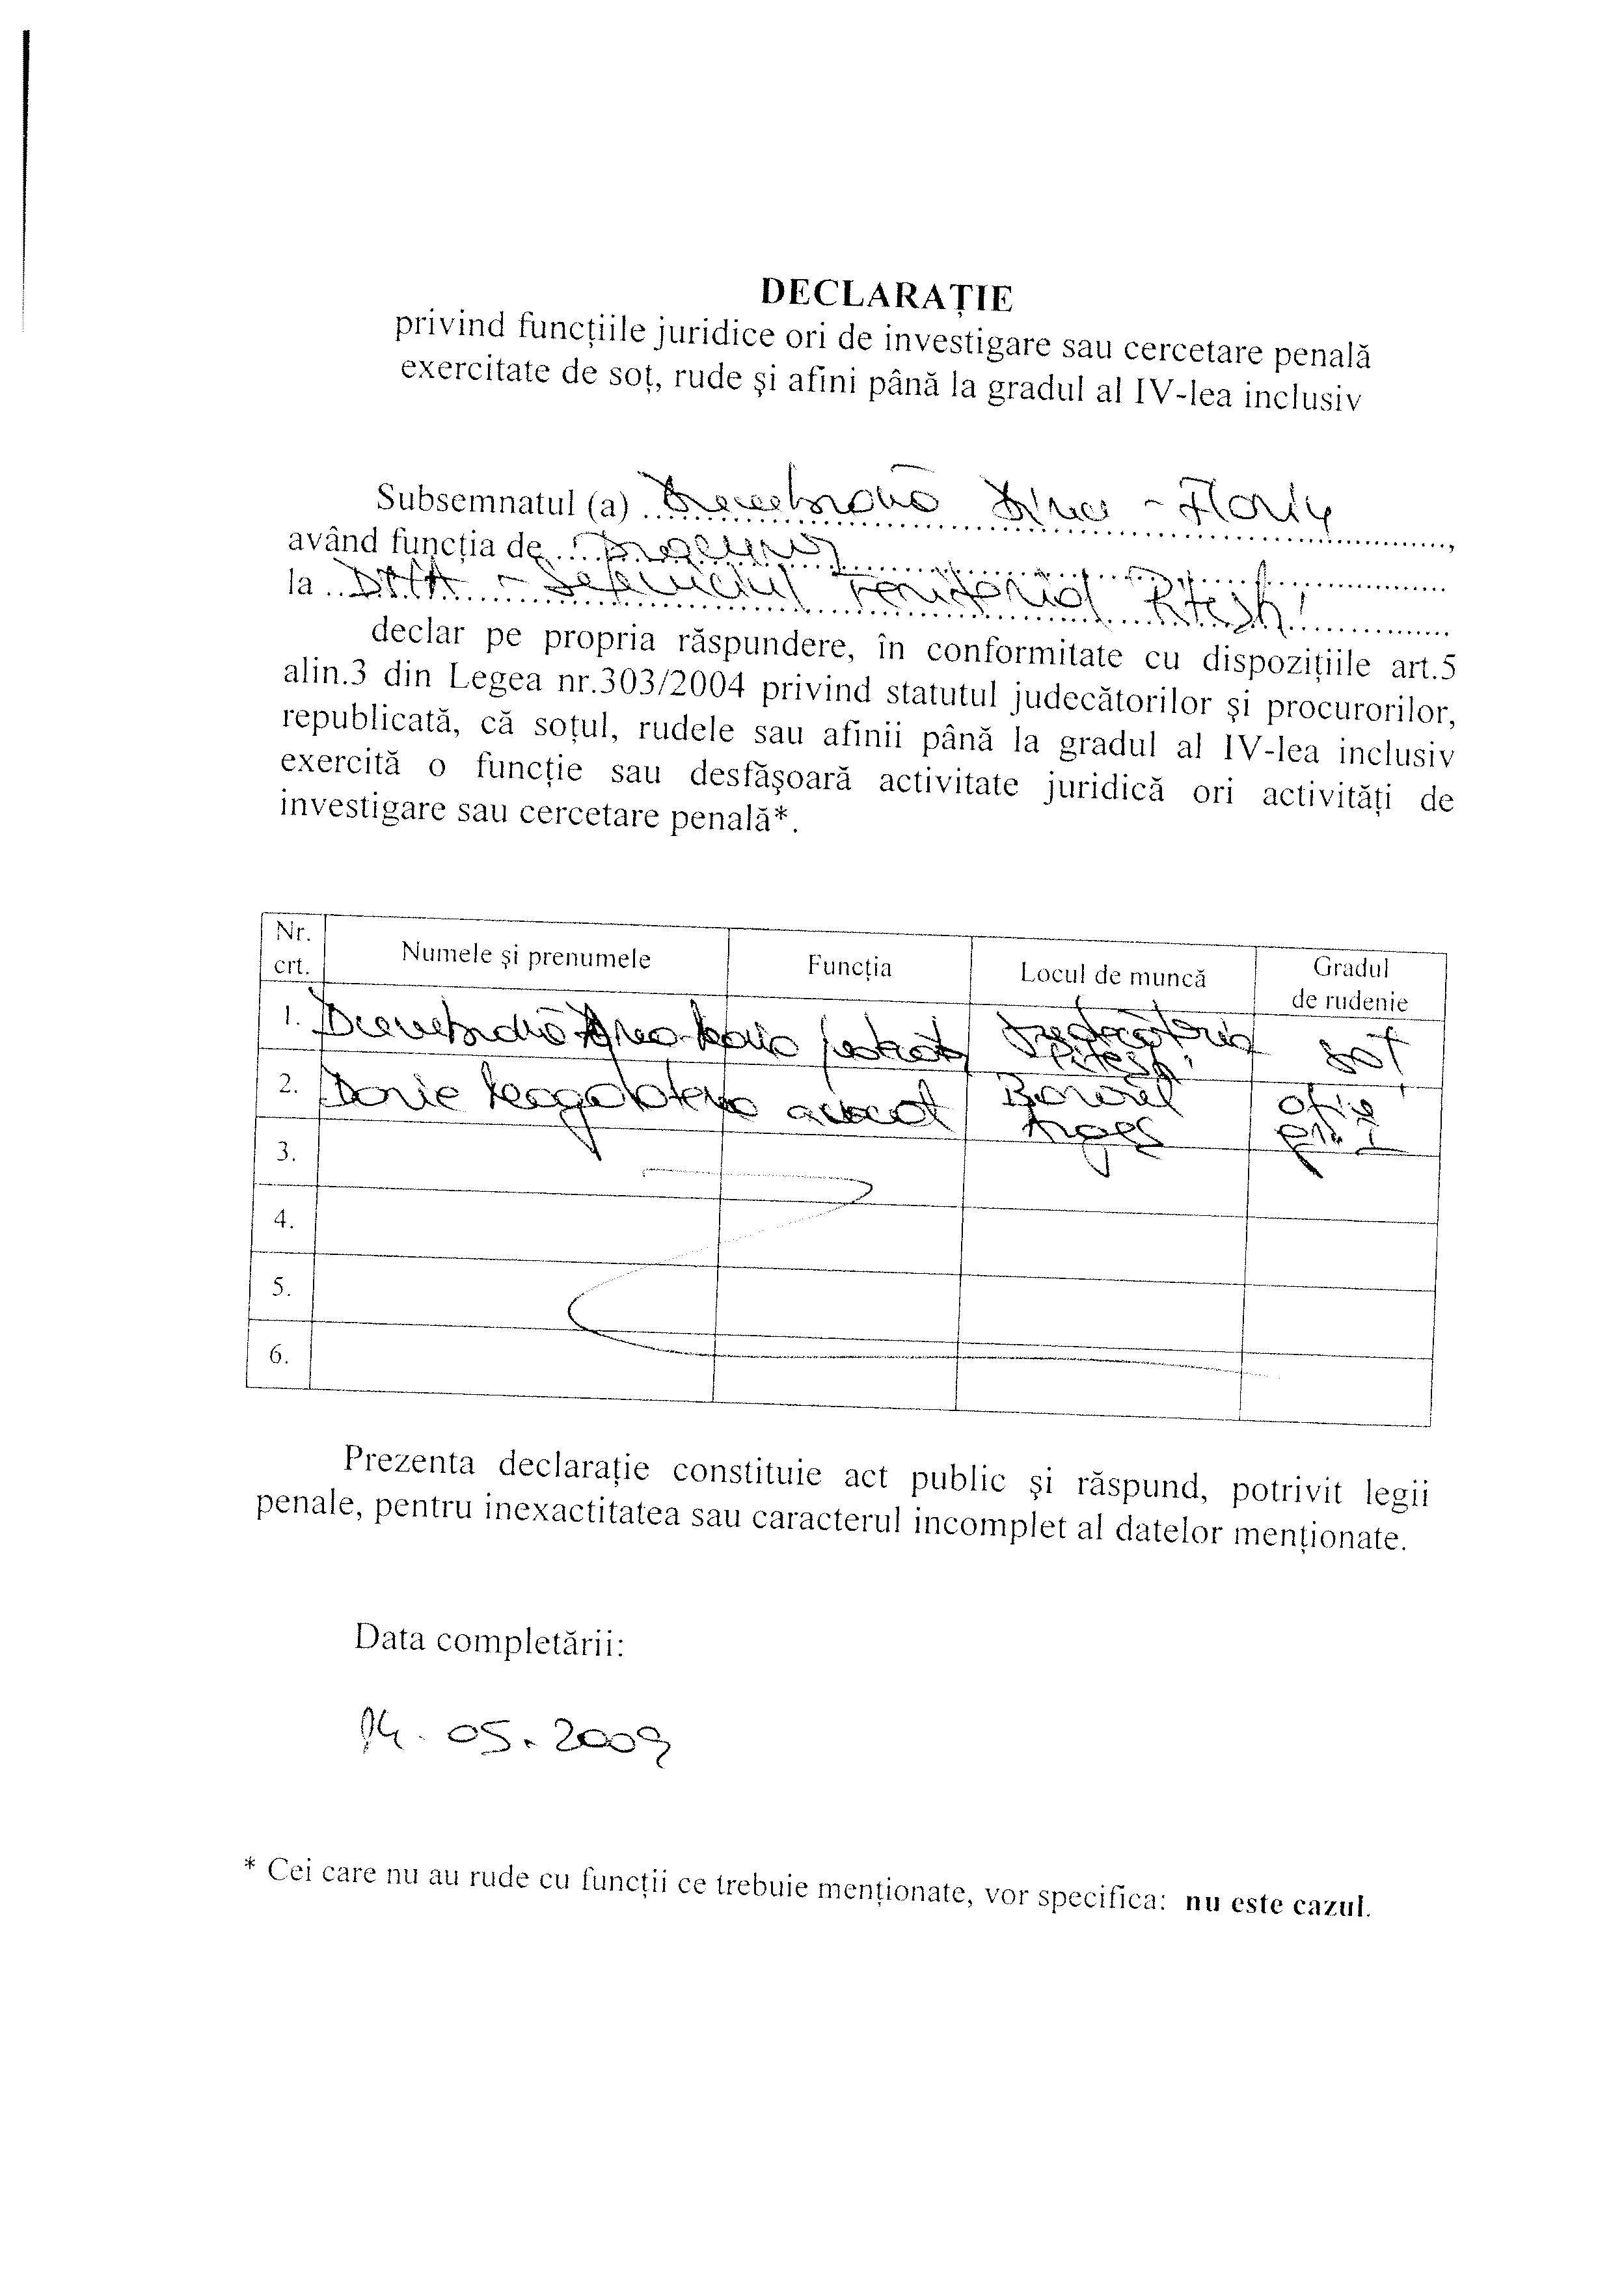 DECLARAȚIE
privind funcțiile juridice ori de investigare sau cercetare penală
exercitate de soț, rude și afini până la gradul al IV-lea inclusiv
Subsemnatul (a) - Florin
având funcția de procuror
la DNA - Serviciul Teritorial Pitești
declar pe propria răspundere, în conformitate cu dispozițiile art.5
alin.3 din Legea nr.303/2004 privind statutul judecătorilor și procurorilor,
republicată, că soțul, rudele sau afinii până la gradul al IV-lea inclusiv
exercită o funcție sau desfășoară activitate juridică ori activități de
investigare sau cercetare penală*.
Nr. crt. Numele și prenumele Funcția Locul de muncă Gradul de rudenie
1. Judecătoria Pitești soț
2. avocat Argeș gr. I
3.
4.
5.
6.
Prezenta declarație constituie act public și răspund, potrivit legii
penale, pentru inexactitatea sau caracterul incomplet al datelor menționate.
Data completării:
14.05.2009
* Cei care nu au rude cu funcții ce trebuie menționate, vor specifica: nu este cazul.